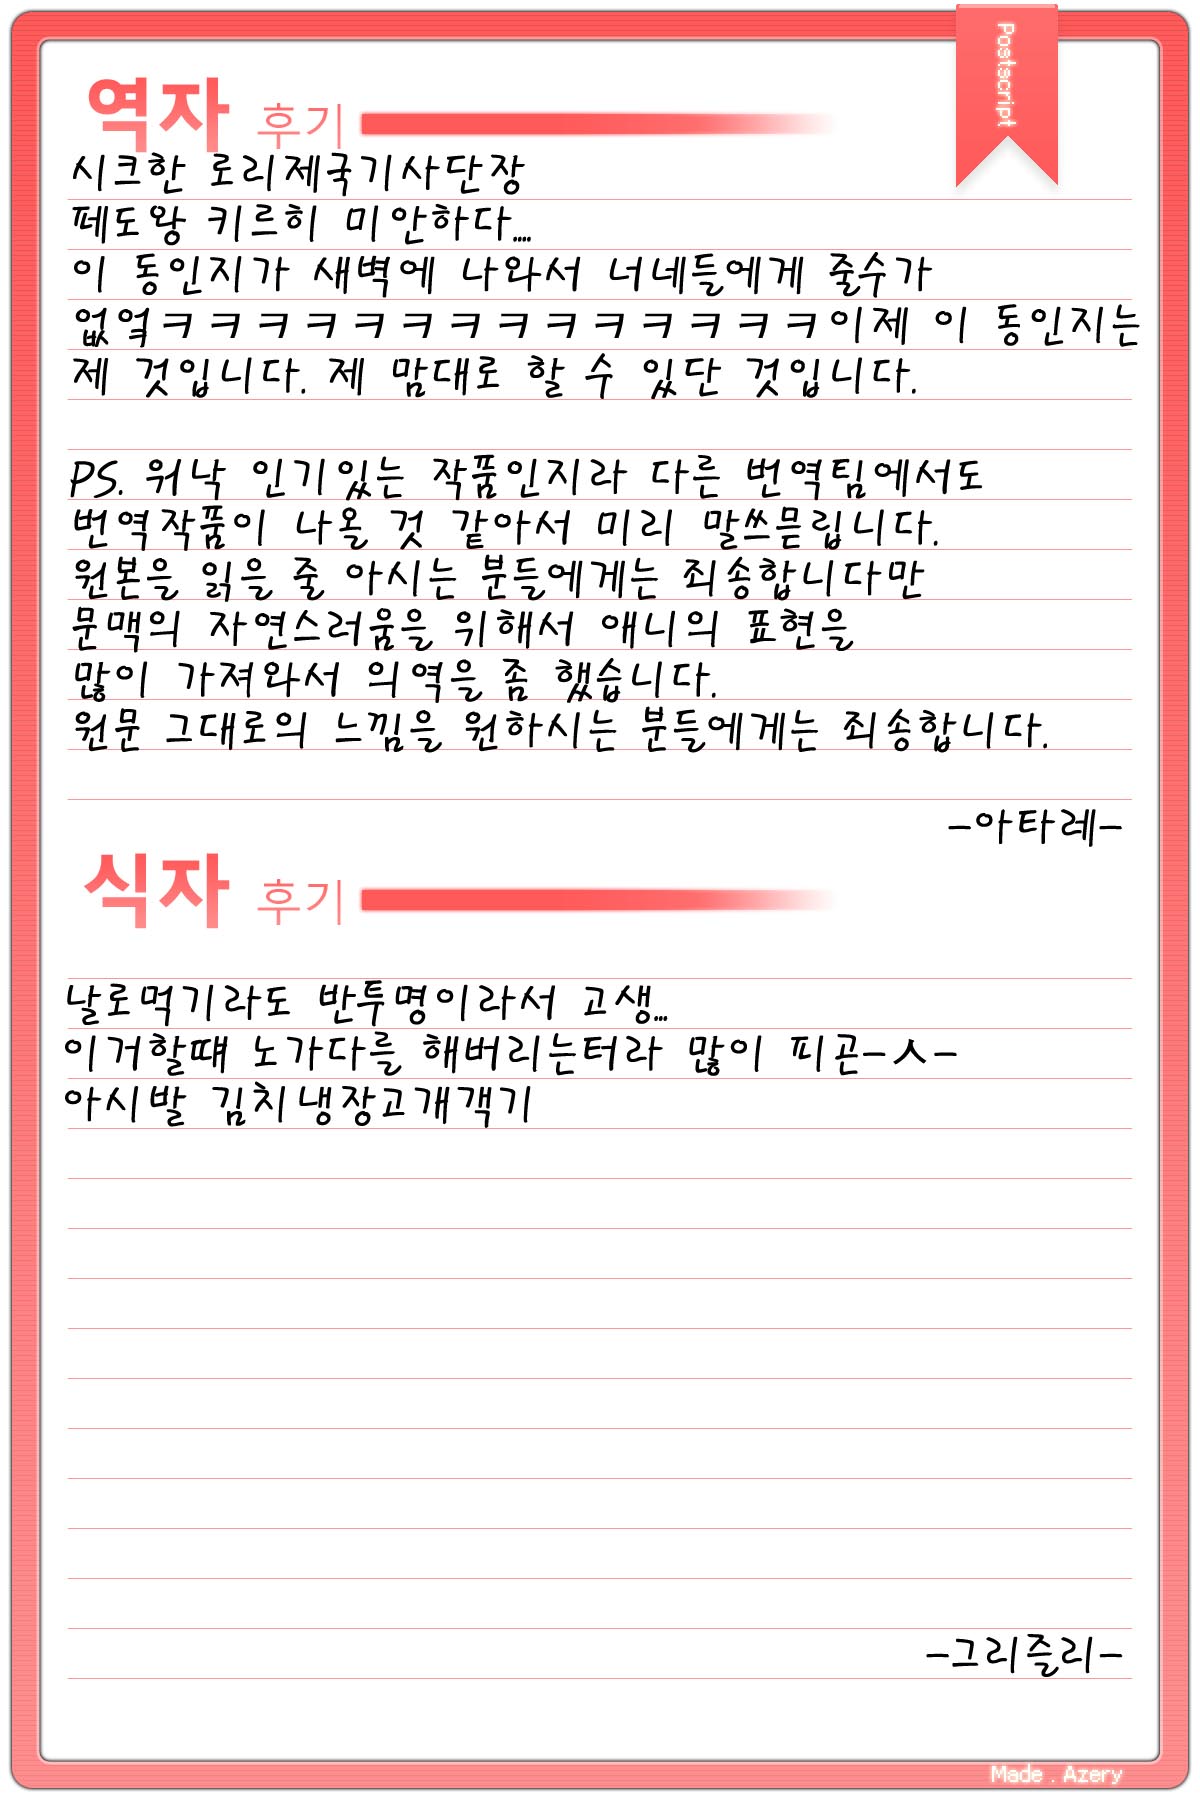 Postscript
역자 후기
시크한 로리제국기사단장
페도왕 키르히 미안하다....
이 동인지가 새벽에 나와서 너네들에게 줄수가
없엌ㅋㅋㅋㅋㅋㅋㅋㅋㅋㅋㅋㅋㅋㅋ이제 이 동인지는
제 것입니다. 제 맘대로 할 수 있단 것입니다.
PS. 워낙 인기있는 작품인지라 다른 번역팀에서도
번역작품이 나올 것 같아서 미리 말쓰믇립니다.
원본을 읽을 줄 아시는 분들에게는 죄송합니다만
문맥의 자연스러움을 위해서 애니의 표현을
많이 가져와서 의역을 좀 했습니다.
원문 그대로의 느낌을 원하시는 분들에게는 죄송합니다.
-아타레-
식자 후기
날로먹기라도 반투명이라서 고생...
이거할떄 노가다를 해버리는터라 많이 피곤-ㅅ-
아시발 김치냉장고개객기
-그리즐리-
Made . Azery